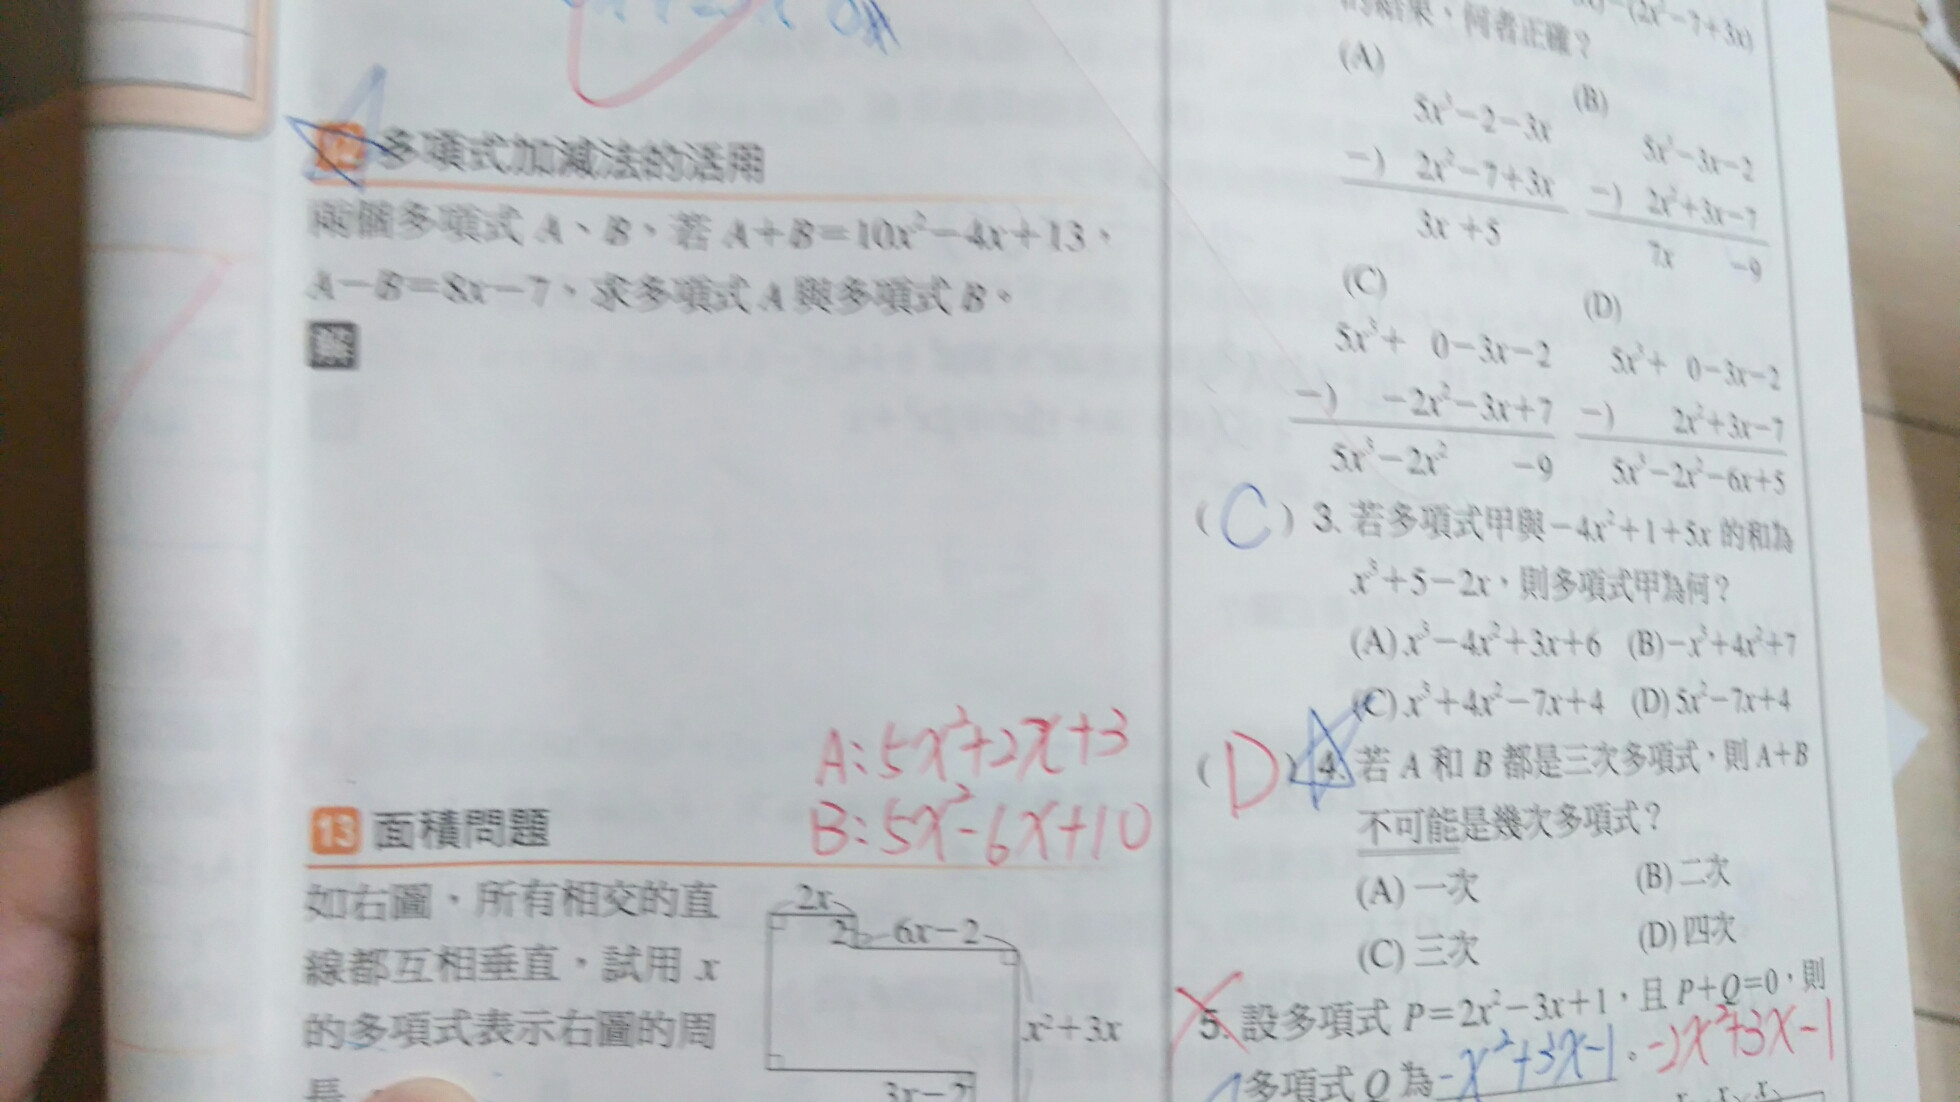 多項式加減法的活用
兩個多項式 A、B，若 A+B=10x²-4x+13，
A-B=8x-7，求多項式 A 與多項式 B。
解
A:5x²+2x+3
B:5x²-6x+10
13 面積問題
如右圖，所有相交的直
線都互相垂直，試用 x
的多項式表示右圖的周
長
2x
2
6x-2
x²+3x
3x-2
-(2x²-7+3x)
的結果，何者正確？
(A)
5x³-2-3x
-) 2x²-7+3x
3x +5
(B)
5x³-3x-2
-) 2x²+3x-7
7x -9
(C)
5x³+ 0-3x-2
-) -2x²-3x+7
5x³-2x² -9
(D)
5x³+ 0-3x-2
-) 2x²+3x-7
5x³-2x²-6x+5
( C ) 3. 若多項式甲與-4x²+1+5x 的和為
x³+5-2x，則多項式甲為何？
(A) x³-4x²+3x+6 (B) -x³+4x²+7
(C) x³+4x²-7x+4 (D) 5x²-7x+4
( D ) 4. 若 A 和 B 都是三次多項式，則 A+B
不可能是幾次多項式？
(A) 一次 (B) 二次
(C) 三次 (D) 四次
5. 設多項式 P=2x²-3x+1，且 P+Q=0，則
多項式 Q 為 -x²+3x-1。-2x²+3x-1